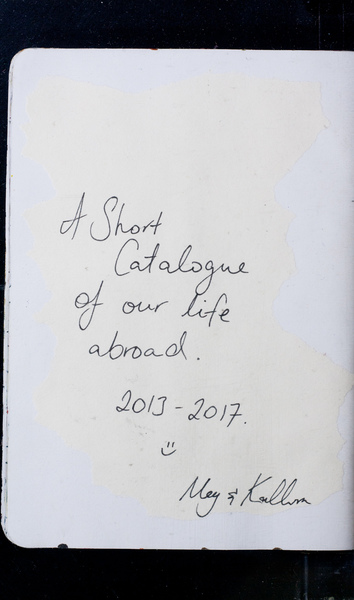 A Short
Catalogue
of our life
abroad.
2013 - 2017.
Meg & Kallum